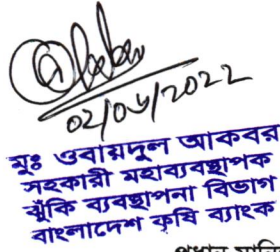 ০২/০৬/২০২২
মুঃ ওবায়দুল আকবর
সহকারী মহাব্যবস্থাপক
ঝুঁকি ব্যবস্থাপনা বিভাগ
বাংলাদেশ কৃষি ব্যাংক